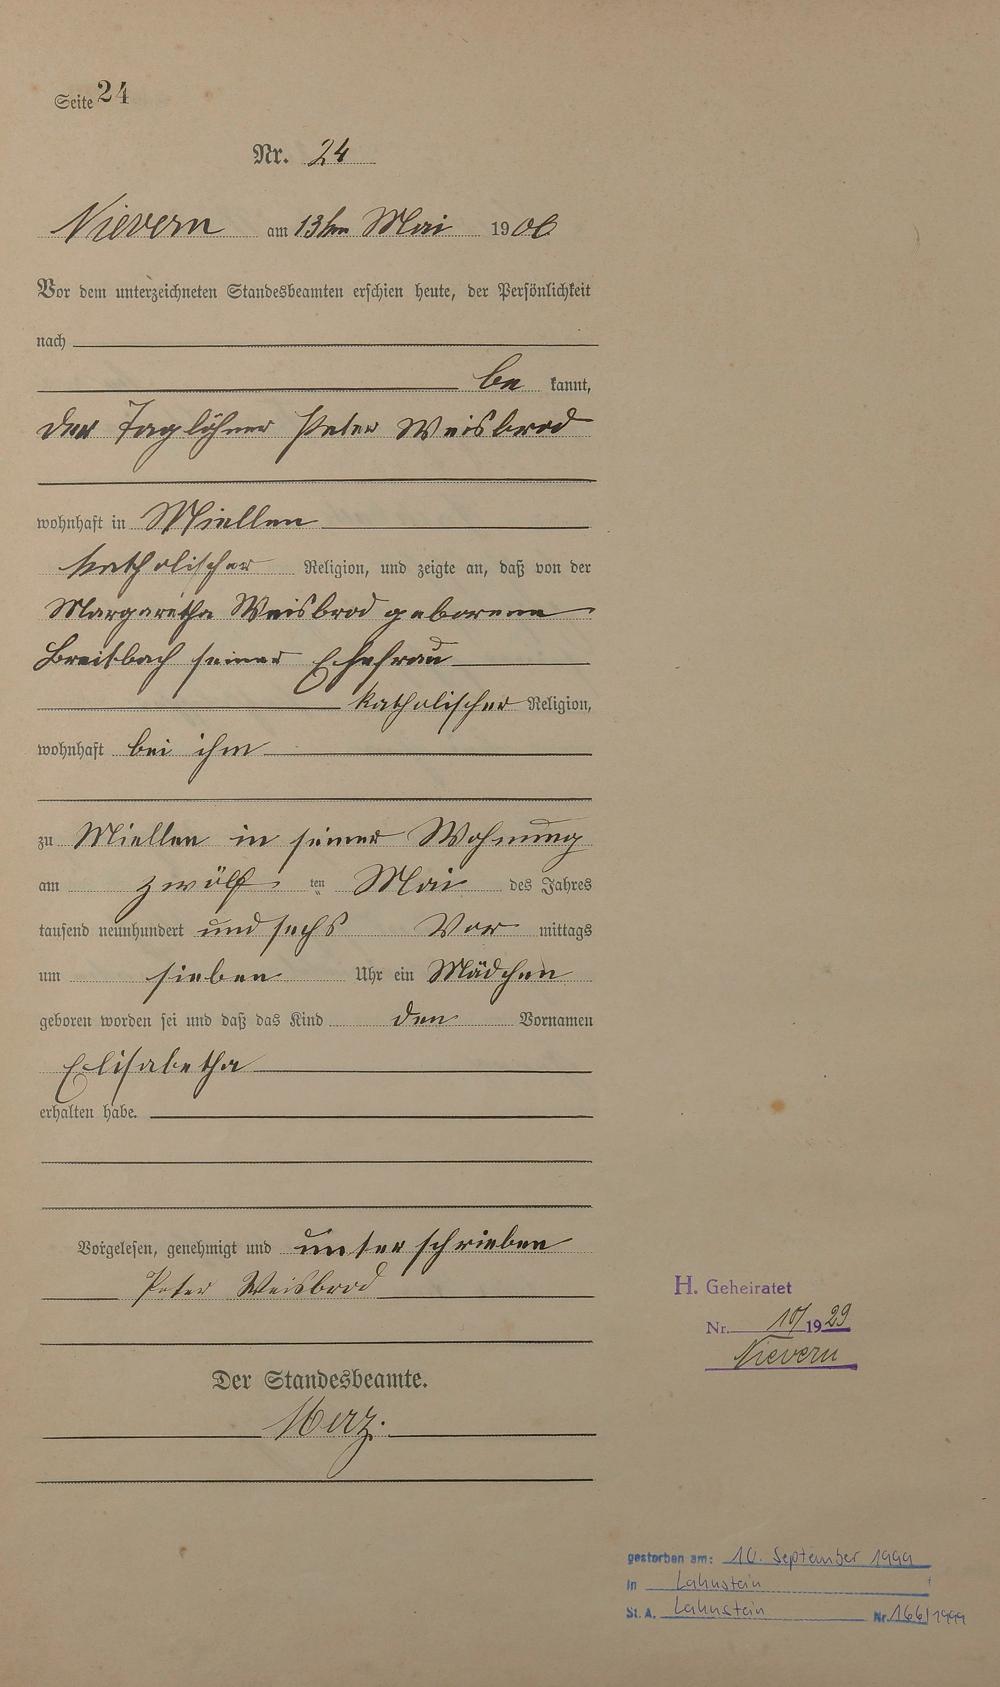 Seite 24
Nr. 24
Nievern am 13ten Mai 1906
Vor dem unterzeichneten Standesbeamten erschien heute, der Persönlichkeit
nach
be kannt,
der Taglöhner Peter Weisbrod
wohnhaft in Miellen
katholischer Religion, und zeigte an, daß von der
Margaretha Weisbrod geborene
Breitbach seiner Ehefrau
katholischer Religion,
wohnhaft bei ihm
zu Miellen in seiner Wohnung
am zwölf ten Mai des Jahres
tausend neunhundert und sechs Vor mittags
um sieben Uhr ein Mädchen
geboren worden sei und daß das Kind den Vornamen
Elisabetha
erhalten habe.
Vorgelesen, genehmigt und unterschrieben
Peter Weisbrod
H. Geheiratet
Nr. 10/ 1929
Nievern
Der Standesbeamte.
Merz.
gestorben am: 10. September 1999
in Lahnstein
St. A. Lahnstein Nr. 166/1999